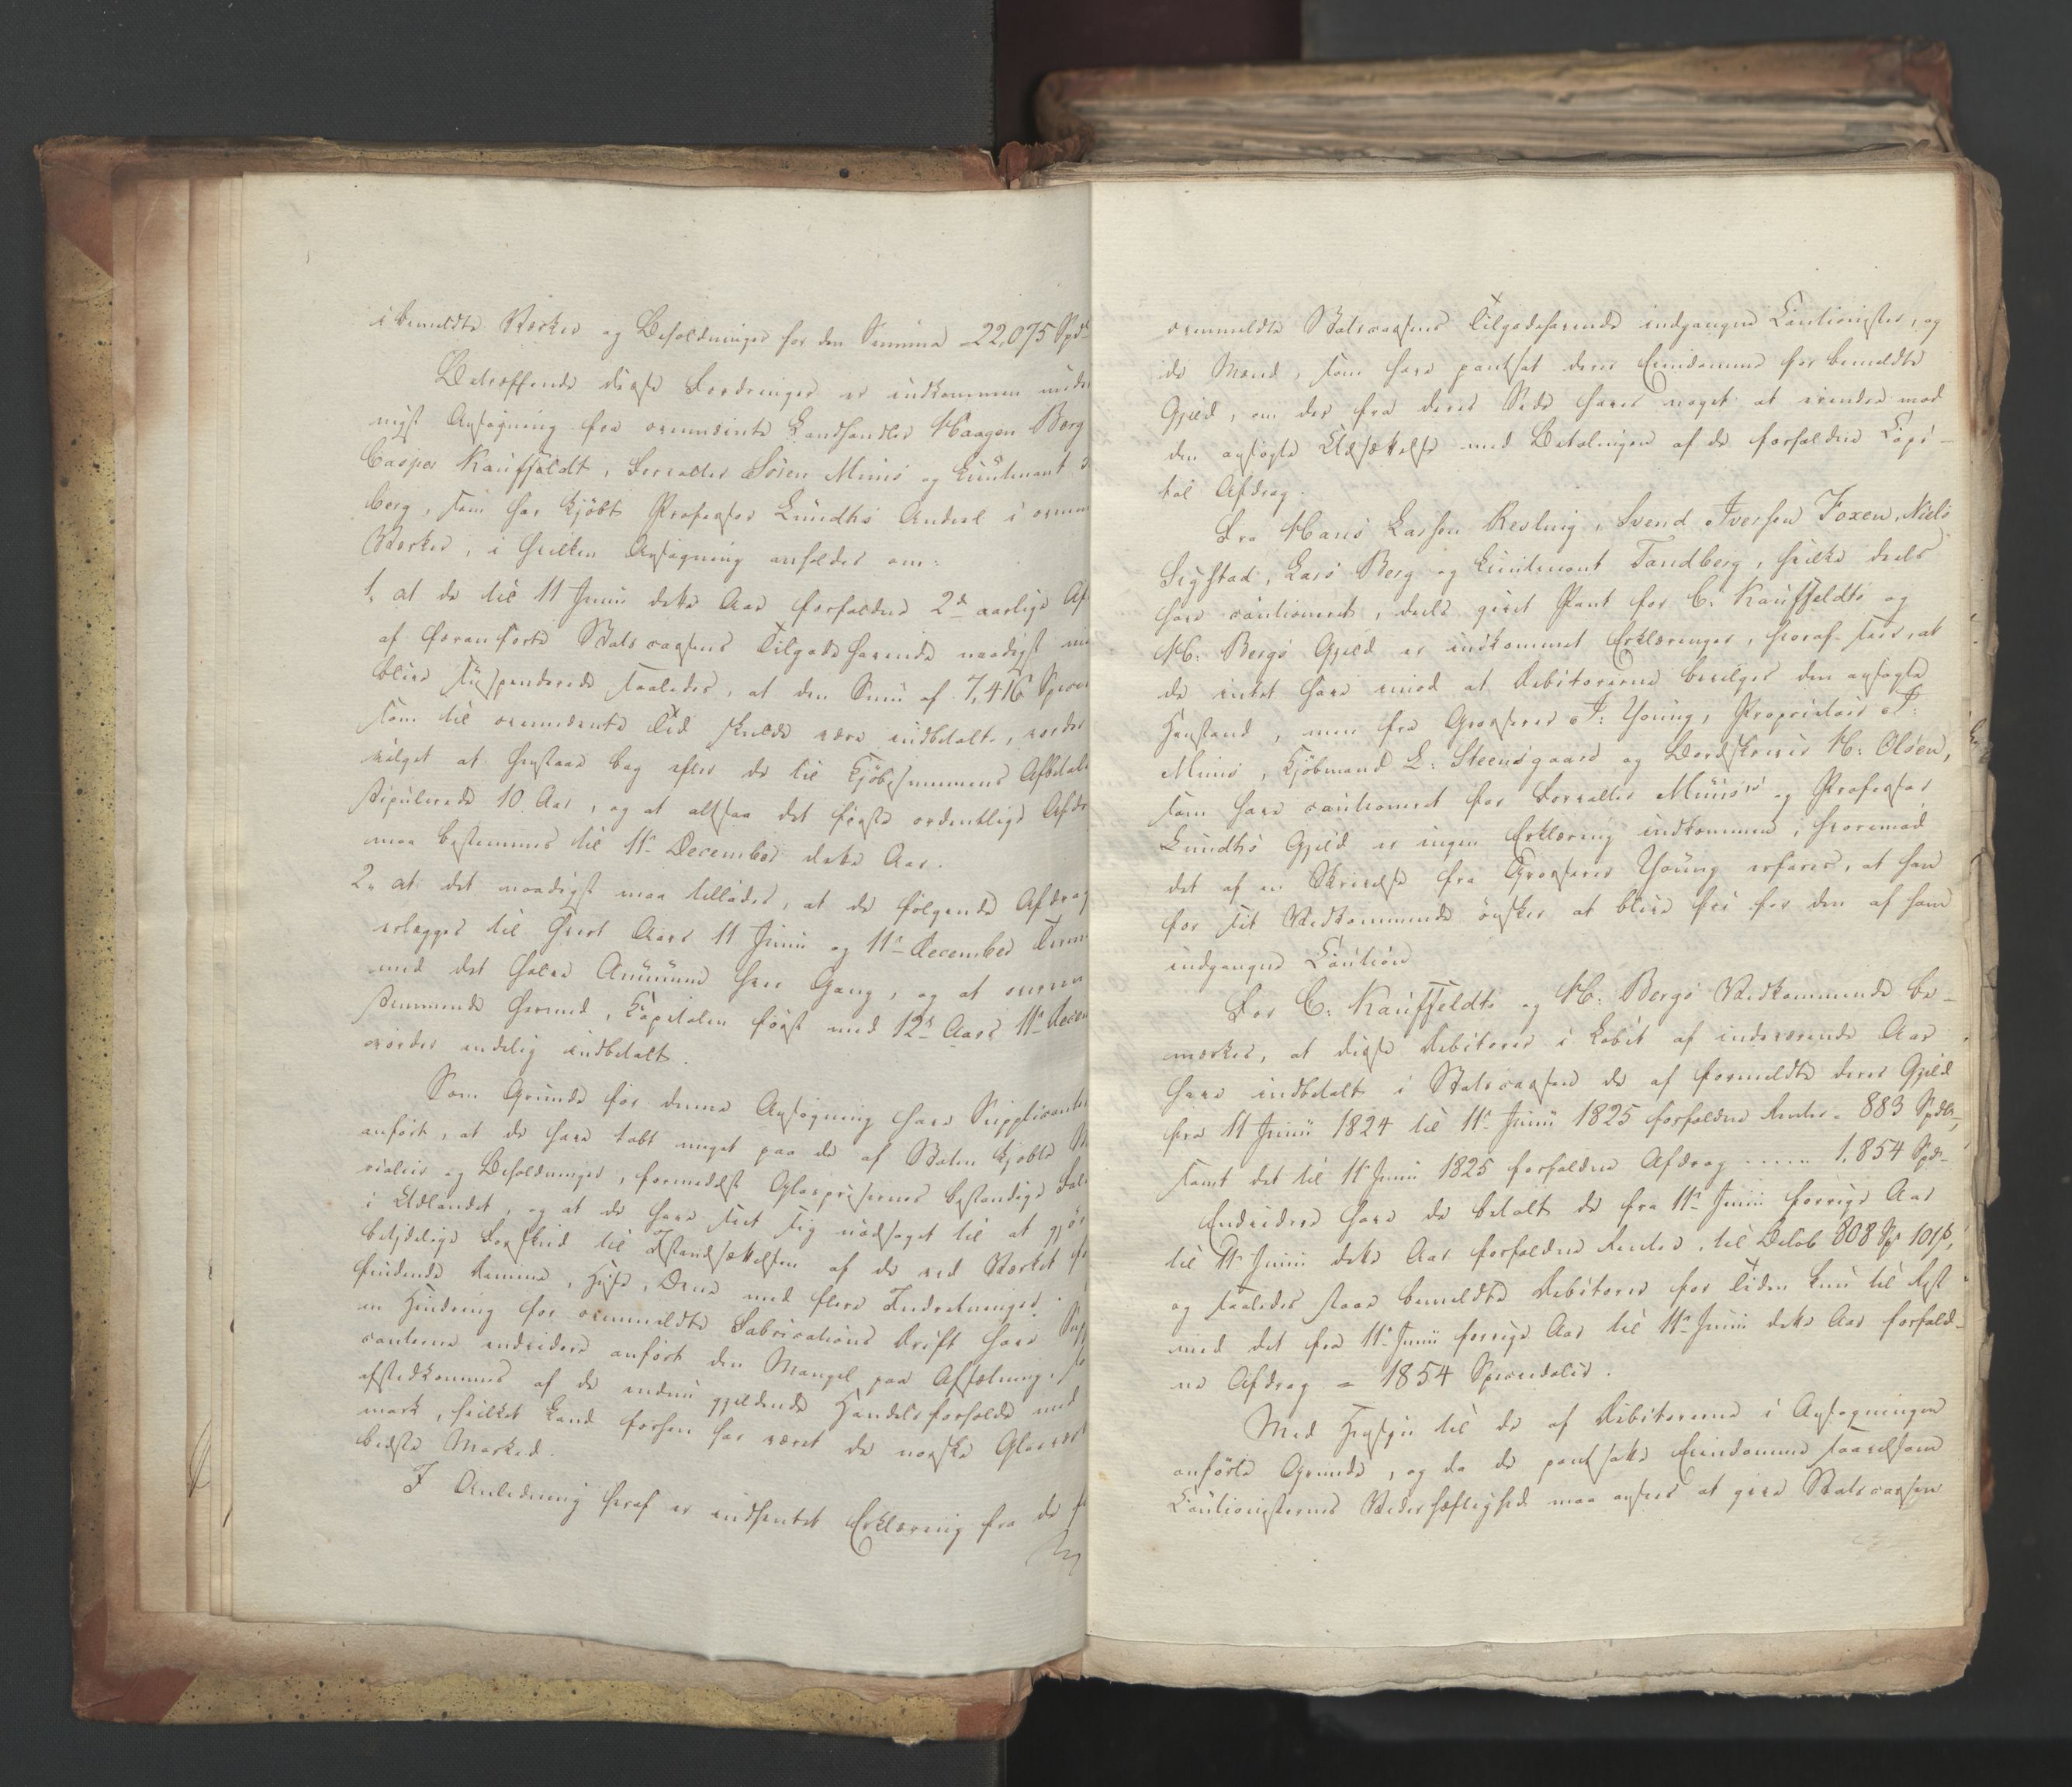 i bemeldte Værker og Beholdninger for den Summa 22,075 Spd
Betræffende disse Fordringer er indkommen under
nigst Ansøgning fra ovennævnte Landhandler Haagen Berg
Casper Kauffeldt, Forvalter Sören Münö og Lieutenant
berg, som har kjöbt Professor Lundhs Andeel i ovenn
Værker, i hvilken Ansøgning anholdes om:
1, at de til 11 Junii dette Aar forfaldne 2de aarlige Af
af foranførte Statscassens Tilgodehavende naadigst m
blive suspenderede saaledes, at den Sum af 7,416 Specie
som til ovennævnte Tid skulde være indbetalt, vorder
vilget at henstaae bag efter de til Kjöbesummens Afbetal
stipulerede 10 Aar, og at altsaa det første ordentlige Afdr
maa bestemmes til 11te December dette Aar.
2, at det naadigst maa tillades, at de følgende Afdrag
erlægges til hvert Aars 11 Junii og 11te December Term
med det halve Annuum hver Gang, og at overeen
stemmende hermed, Capitalen først med 12te Aars 11te Decem
vorder endelig indbetalt.
Som Grunde for denne Ansøgning have Supplicante
anført, at de have tabt meget paa de af Staten kjøbte M
rialier og Beholdninger, formedelst Glaspriisernes bestandige Fal
i Udlandet, og at de have seet sig nødsaget til at gjør
betydelige Forskud til Istandsættelsen af de ved Værket
findende Damme, Huse, Ovne med flere Indretninger.
en Hindring for ovenmeldte Fabricationens Drift have Sup
canterne endvidere anført den Mangel paa Afsætning, s
afstedkommes af de endnu gjeldende Handelsforholde med
mark, hvilket Land forhen har været de norske Glasværk
bedste Marked.
I Anledning heraf er indhentet Erklæring fra de f
ovenmeldte Statscassens Tilgodehavende indgangne Cautionister, og
de Mænd, som have pantsat deres Eiendomme for bemeldte
Gjeld, om der fra deres Side haves noget at erindre mod
den ansøgte Udsættelse med Betalingen af de forfaldne Capi-
tal Afdrag.
Fra Hans Larsen Revling, Svend Iversen Foxen, Niels
Sigstad, Lars Berg og Lieutenant Tandberg, hvilke deels
have cautioneret, deels givet Pant for C: Kauffeldts og
H: Bergs Gjeld er indkommet Erklæringer, hvoraf sees, at
de intet have imod at Debitorerne bevilges den ansøgte
Henstand, men fra Grosserer J: Young, Proprietair J:
Münö, Kjöbmand L: Steensgaard og Sorenskriver H: Olsen,
som have cautioneret for Forvalter Münös og Professor
Lundhs Gjeld er ingen Erklæring indkommen, hvoremod
det af en Skrivelse fra Grosserer Young erfares, at han
for sit Vedkommende ønsker at blive frie for den af ham
indgangne Caution
For C: Kauffeldts og H: Bergs Vedkommende be-
mærkes, at disse Debitorer i Løbet af indeværende Aar
have indbetalt i Statscassen de af formeldte deres Gjeld
fra 11 Junii 1824 til 11te Junii 1825 forfaldne Renter = 883 Spdlr,
samt det til 11te Junii 1825 forfaldne Afdrag ...... 1,854 Spdr
Endvidere have de betalt de fra 11te Junii forrige Aar
til 11te Junii dette Aar forfaldne Renter, til Beløb 808 Spd 101 ß,
og saaledes staae bemeldte Debitorer for Tiden kun til Rest
med det fra 11te Junii forrige Aar til 11te Junii dette Aar forfald-
ne Afdrag = 1854 Speciedaler.
Med Hensyn til de af Debitorerne i Ansøgningen
anførte Grunde, og da de pantsatte Eiendomme saavelsom
Cautionisternes Vederhæftighed maa ansees at give Statscassen